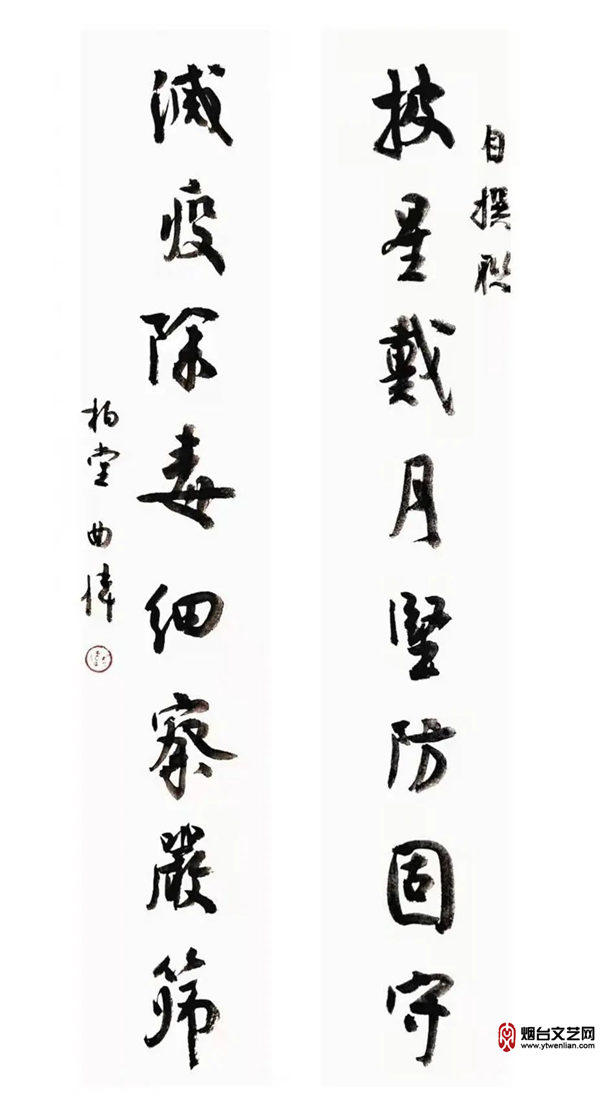 自撰联
披星戴月堅防固守
滅疫除毒细察嚴篩
柏堂 曲偉
烟台文艺网
www.ytwenlian.com